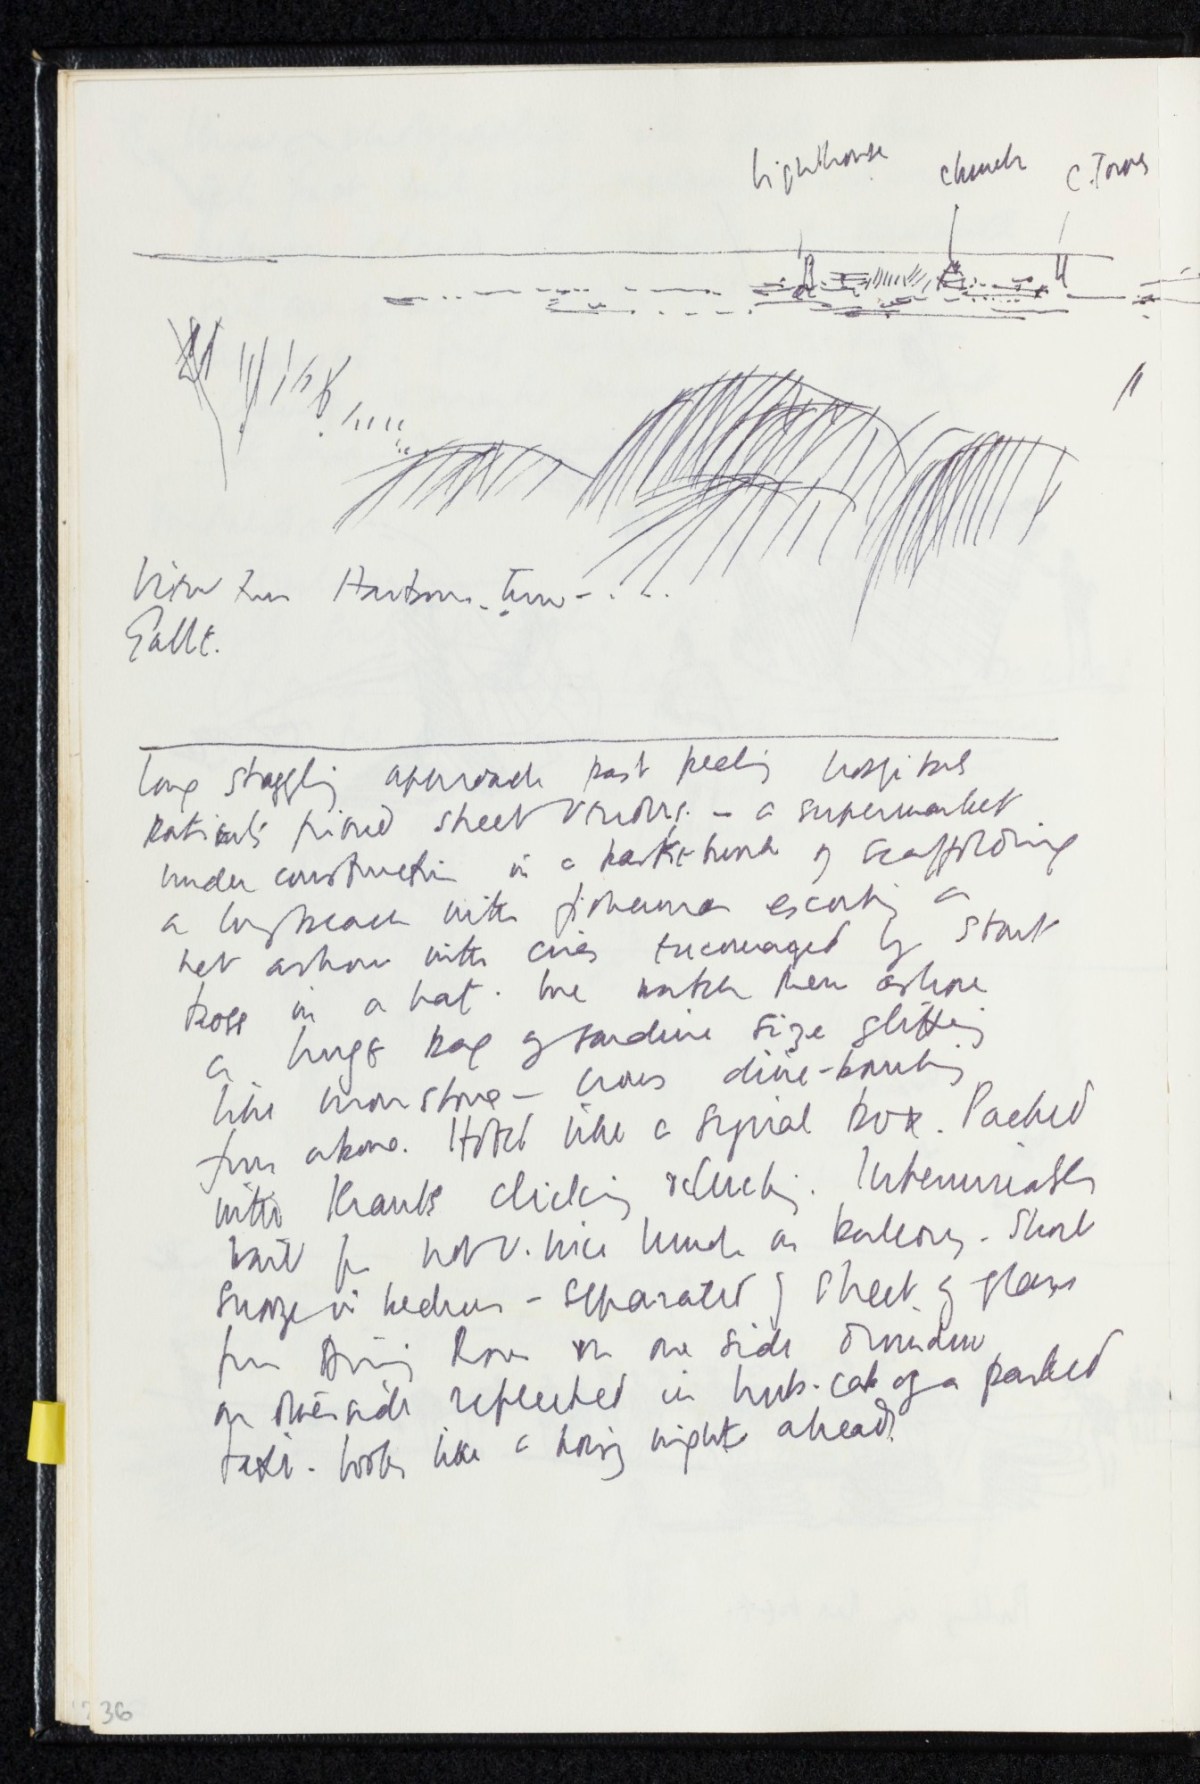 lighthouse church C. Tower
View from Harbour
Galle.
long straggling approach past peeling hospital
patients street vendors. – a supermarket
under construction in a of scaffolding
a long beach with fishermen escorting a
net ashore with cries encouraged by stout
boss in a hat. We watch them ashore
a huge bag of sardine size glittering
like moonstone – crows dive-bombing
from above. Hotel like a signal box. Packed
with Krauts clicking Interminable
wait for not v. nice lunch on balcony. Short
snooze in bedroom – separated by sheet of glass
from Dining Room on one side
on other side reflected in hub-cap of a parked
taxi. looks like a noisy night ahead.
36